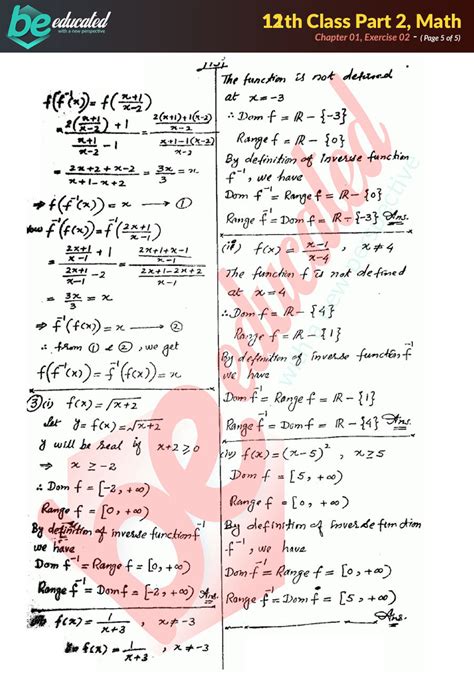 be educated
with a new perspective
12th Class Part 2, Math
Chapter 01, Exercise 02 - ( Page 5 of 5 )
f(f⁻¹(x)) = f((x+1)/(x-2))
= (2((x+1)/(x-2)) + 1)/((x+1)/(x-2) - 1) = ((2(x+1)+1(x-2))/(x-2))/((x+1-1(x-2))/(x-2))
= (2x+2+x-2)/(x+1-x+2) = 3x/3 = x
⇒ f(f⁻¹(x)) = x → ①
f⁻¹(f(x)) = f⁻¹((2x+1)/(x-1))
= ((2x+1)/(x-1) + 1)/((2x+1)/(x-1) - 2) = ((2x+1+x-1)/(x-1))/((2x+1-2x+2)/(x-1))
= 3x/3 = x
⇒ f⁻¹(f(x)) = x → ②
∴ from ① & ②, we get
f(f⁻¹(x)) = f⁻¹(f(x)) = x
③(i) f(x) = √(x+2)
Let y = f(x) = √(x+2)
y will be real if x+2 ≥ 0
⇒ x ≥ -2
∴ Dom f = [-2, +∞)
Range f = [0, +∞)
By definition of inverse function f⁻¹
we have
Dom f⁻¹ = Range f = [0, +∞)
Range f⁻¹ = Dom f = [-2, +∞) Ans.
f(x) = 1/(x+3), x ≠ -3
f(x) = 1/(x+3), x ≠ -3
The function is not defined
at x = -3
∴ Dom f = R - {-3}
Range f = R - {0}
By definition of inverse function
f⁻¹, we have
Dom f⁻¹ = Range f = R - {0}
Range f⁻¹ = Dom f = R - {-3} Ans.
(iii) f(x) = (x-1)/(x-4), x ≠ 4
The function f is not defined
at x = 4
∴ Dom f = R - {4}
Range f = R - {1}
By definition of inverse function f⁻¹
we have
Dom f⁻¹ = Range f = R - {1}
Range f⁻¹ = Dom f = R - {4} Ans.
(iv) f(x) = (x-5)², x ≥ 5
Dom f = [5, +∞)
Range f = [0, +∞)
By definition of inverse function
f⁻¹, we have
Dom f⁻¹ = Range f = [0, +∞)
Range f⁻¹ = Dom f = [5, +∞)
Ans.